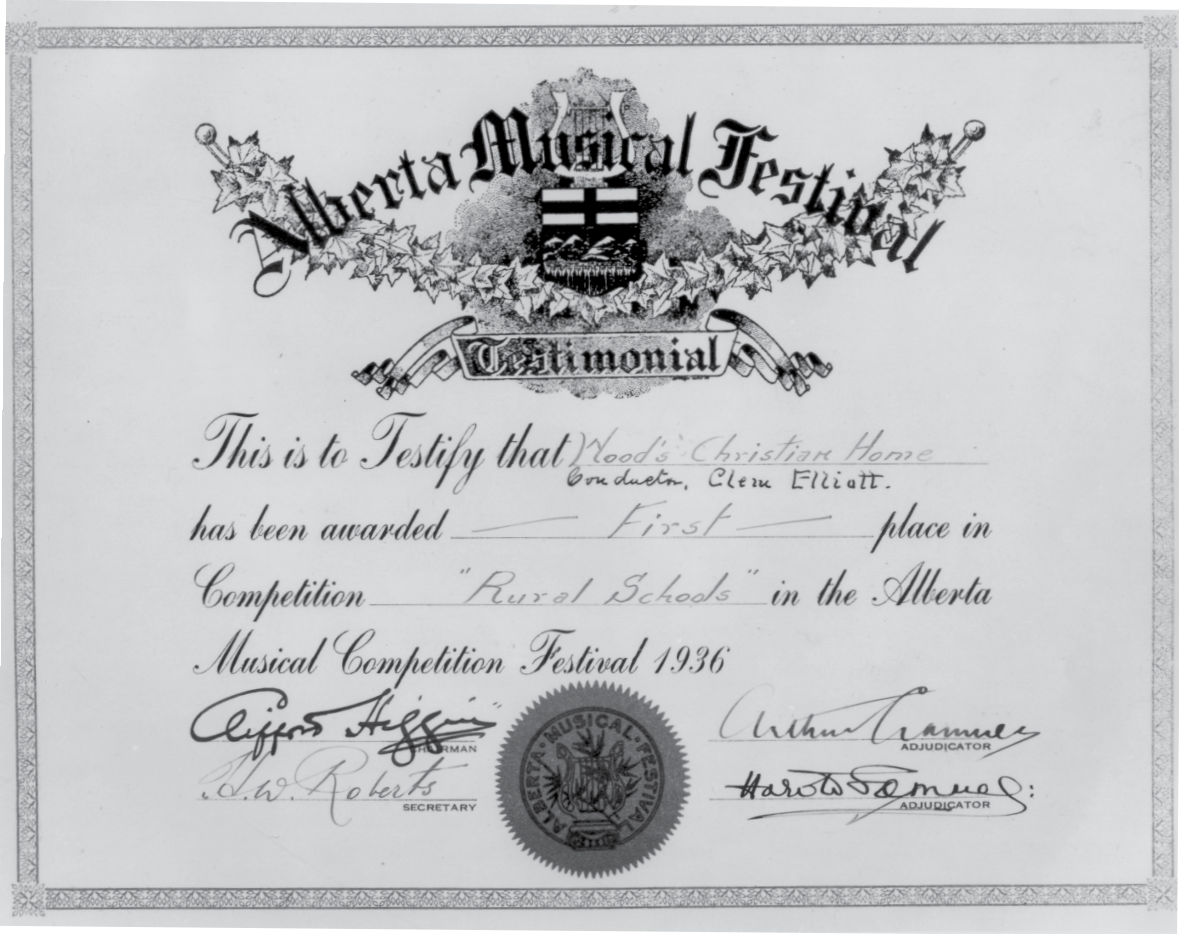 Alberta Musical Festival
Testimonial
This is to Testify that Wood's Christian Home
Conductor, Clem Elliott.
has been awarded — First — place in
Competition "Rural Schools" in the Alberta
Musical Competition Festival 1936
Clifford Higgin
CHAIRMAN
A.W. Roberts
SECRETARY
ALBERTA · MUSICAL · FESTIVAL
Arthur
ADJUDICATOR
Harold Samuel:
ADJUDICATOR